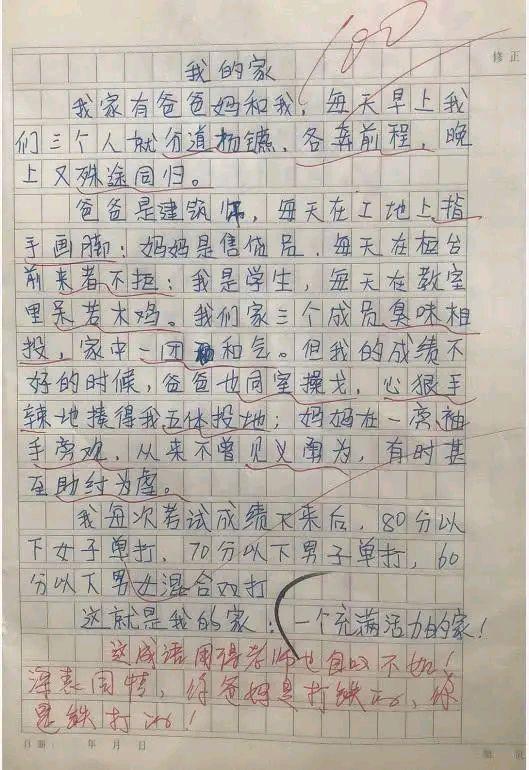 100
修正
我的家
我家有爸爸妈和我，每天早上我
们三个人就分道杨镳，各奔前程，晚
上又殊途同归。
爸爸是建筑师，每天在工地上指
手画脚；妈妈是售货员，每天在柜台
前来者不拒；我是学生，每天在教室
里呆若木鸡。我们家三个成员臭味相
投，家中一团和气。但我的成绩不
好的时候，爸爸也同室操戈，心狠手
辣地揍得我五体投地；妈妈在一旁袖
手旁观，从来不曾见义勇为，有时甚
至助纣为虐。
我每次考试成绩下来后，80分以
下女子单打，70分以下男子单打，60
分以下男女混合双打
这就是我的家：一个充满活力的家！
这成语用得老师也自叹不如！
深表同情，你爸妈是打铁的，你
是铁打的！
日期： 年 月 日